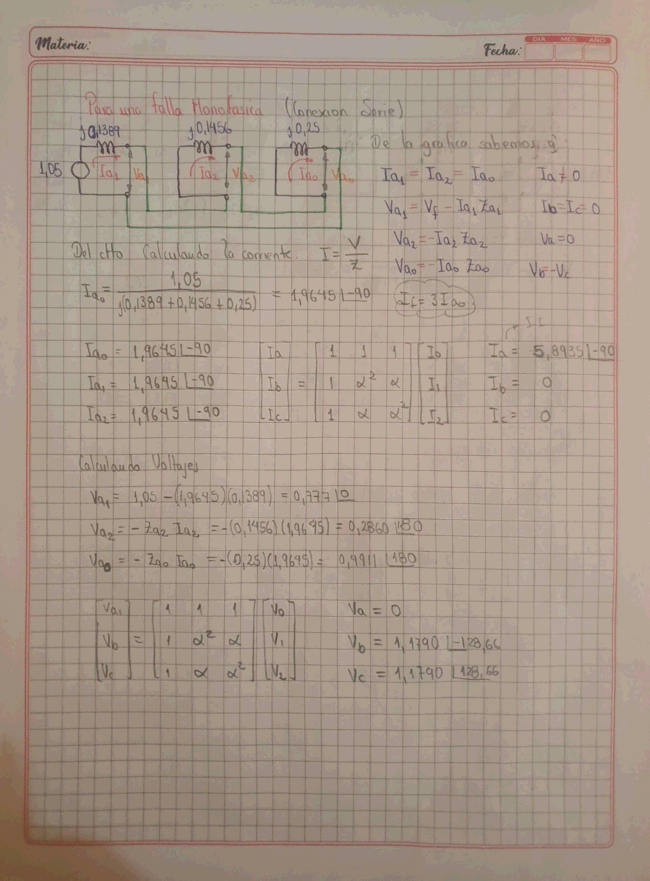 Materia:
Fecha:
DIA MES AÑO
Para una falla Monofasica (Conexion Serie)
j0,1389 j0,1456 j0,25
1,05 Ia₁ Va₁ Ia₂ Va₂ Ia₀ Va₀
De la grafica sabemos q'
Ia₁ = Ia₂ = Ia₀ Ia ≠ 0
Va₁ = Vf - Ia₁ Za₁ Ib = Ic = 0
Va₂ = -Ia₂ Za₂ Va = 0
Va₀ = -Ia₀ Za₀ Vb = -Vc
Del ctto Calculando la corriente. I = V/Z
Ia₀ = 1,05 / j(0,1389 + 0,1456 + 0,25) = 1,9645 ∠-90
If = 3 Ia₀
Ia₀ = 1,9645 ∠-90
Ia₁ = 1,9645 ∠-90
Ia₂ = 1,9645 ∠-90
[Ia] = [1 1 1] [I₀]
[Ib] = [1 α² α] [I₁]
[Ic] = [1 α α²] [I₂]
Ia = 5,8935 ∠-90
Ib = 0
Ic = 0
Calculando Voltajes
Va₁ = 1,05 - (1,9645)(0,1389) = 0,777 ∠0
Va₂ = - Za₂ Ia₂ = -(0,1456)(1,9645) = 0,2860 ∠180
Va₀ = - Za₀ Ia₀ = -(0,25)(1,9645) = 0,4911 ∠180
[Va₁] = [1 1 1] [V₀]
[Vb] = [1 α² α] [V₁]
[Vc] = [1 α α²] [V₂]
Va = 0
Vb = 1,1790 ∠-128,66
Vc = 1,1790 ∠128,66